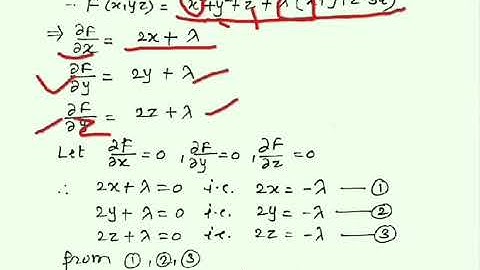 ∴ F(x,y,z) = x²+y²+z²+λ(x+y+z-3a)
⇒ ∂F/∂x = 2x+λ
∂F/∂y = 2y+λ
∂F/∂z = 2z+λ
Let ∂F/∂x=0, ∂F/∂y=0, ∂F/∂z=0
∴ 2x+λ=0 i.e. 2x=-λ —①
2y+λ=0 i.e. 2y=-λ —②
2z+λ=0 i.e. 2z=-λ —③
from ①,②,③